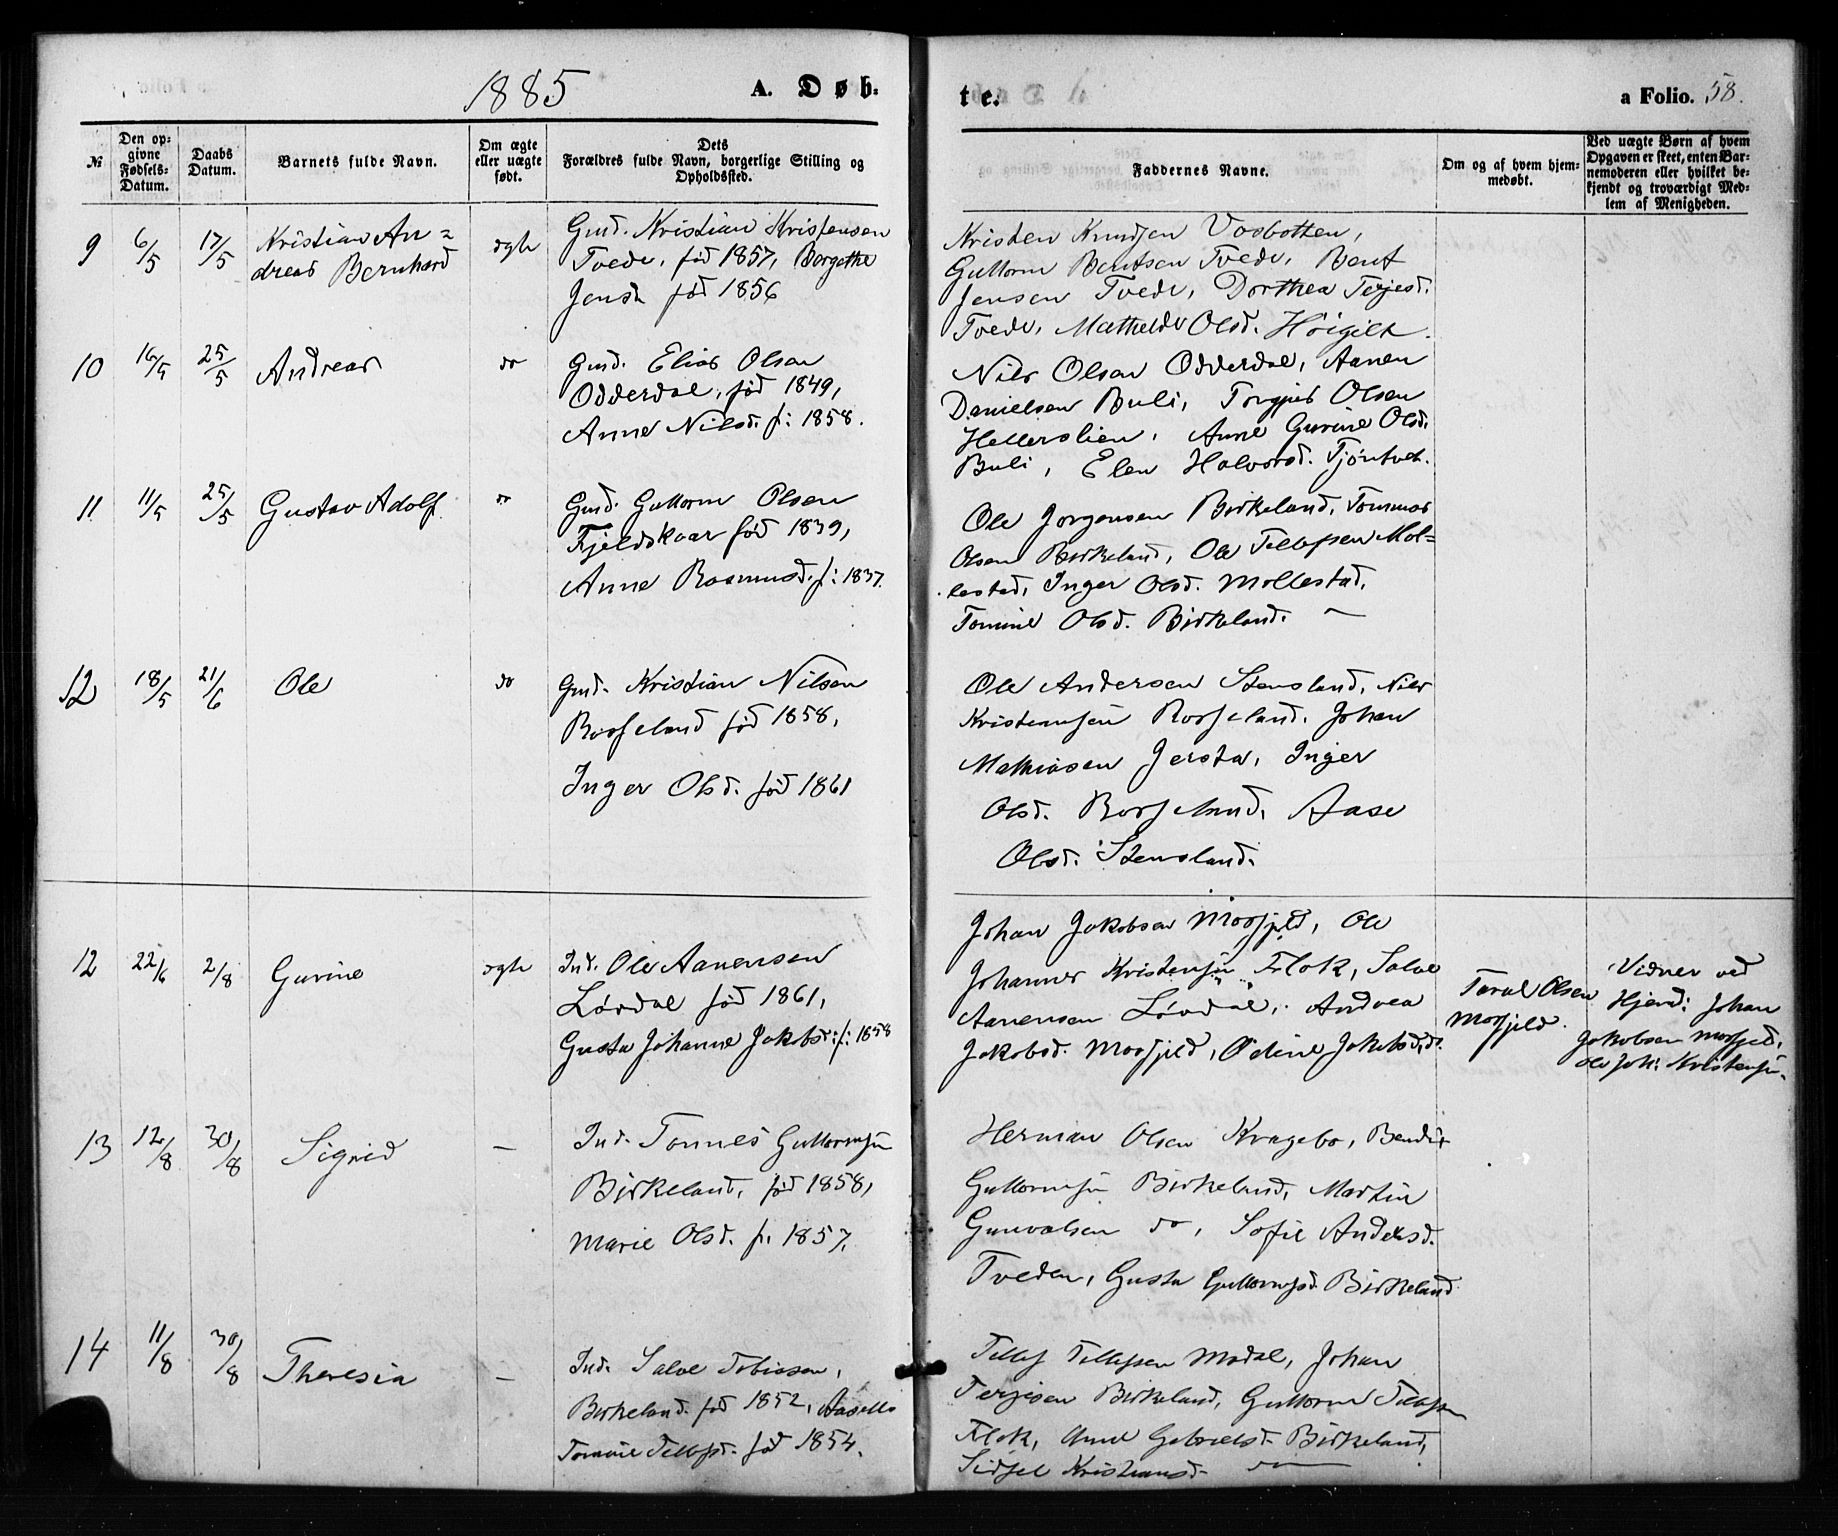 1885
A. Døb-
te.
a Folio. 58.
№
Den op-
givne
Fødsels-
Datum.
Daabs
Datum.
Barnets fulde Navn.
Om ægte
eller uægte
født.
Dets
Forældres fulde Navn, borgerlige Stilling og
Opholdssted.
Faddernes Navne.
Om og af hvem hjem-
medøbt.
Ved uægte Børn af hvem
Opgaven er skeet, enten Bar-
nemoderen eller hvilket be-
kjendt og troværdigt Med-
lem af Menigheden.
9
6/5
17/5
Kristian An-
dreas Bernhard
ægte
Gmd. Kristian Kristensen
Tvede, fød 1857, Borgethe
Jensd. fød 1856
Kristen Knudsen Vosbotten,
Guttorm Bentsen Tvede, Bent
Jensen Tvede, Dorthea Terjesd.
Tvede, Mathilde Olsd. Höigilt.
10
16/5
25/5
Andreas
do
Gmd. Elias Olsen
Odderdal, fød 1849,
Anne Nilsd. f: 1858.
Nils Olsen Odderdal, Aanen
Danielsen Buli, Torgjus Olsen
Hellerslien, Anne Gurine Olsd.
Buli, Elen Halvorsd. Tjöntvet.
11
11/5
25/5
Gustav Adolf
do
Gmd. Guttorm Olsen
Fjeldskaar fød 1839,
Anne Rasmusd. f: 1837.
Ole Jørgensen Birkeland, Tommas
Olsen Birkeland, Ole Tellefsen Mol-
lestad, Inger Olsd. Mollestad,
Tomine Olsd. Birkeland. —
12
18/5
21/6
Ole
do
Gmd. Kristian Nilsen
Rosseland fød 1858,
Inger Olsd. fød 1861
Ole Andersen Stensland, Nils
Kristiansen Rosseland. Johan
Mathiasen Jersta, Inger
Olsd. Rosseland, Aase
Olsd. Stensland.
12
22/6
2/8
Gurine
ægte
Ind. Ole Aanensen
Lövdal fød 1861,
Gusta Johanne Jakobsd: f: 1858
Johan Jakobsen Mosfjeld, Ole
Johannes Kristensen Flak, Salve
Aanensen Lövdal, Andrea
Jakobsd. Mosfjeld, Odine Jakobsd, do.
Taral Olsen
Mosfjeld.
Vidner ved
Hjemd: Johan
Jakobsen Mosfjeld,
Ole Joh: Kristensen.
13
12/8
30/8
Sigrid
—
Ind. Tønnes Guttormsen
Birkeland, fød 1858,
Marie Olsd. f. 1857.
Herman Olsen Kragebo, Bendix
Guttormsen Birkeland, Martin
Gunvalsen do, Sofie Andersd.
Tveden, Gusta Guttormsd. Birkeland
14
11/8
30/8
Theresia
—
Ind. Salve Tobiassen,
Birkeland. fød 1852,
Tomine Tellefsd. fød 1854.
Tellef Tellefsen Modal, Johan
Terjesen Birkeland, Guttorm Tellefsen
Flak, Anne Gabrielsd. Birkeland,
Sidsel Kristiansd. do